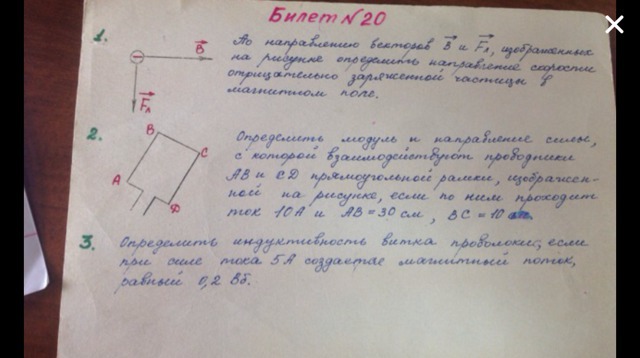 Билет №20
1.
B
Fл
По направлению векторов B и Fл, изображенных
на рисунке определить направление скорости
отрицательно заряженной частицы в
магнитном поле.
2.
B
C
A
D
Определить модуль и направление силы,
с которой взаимодействуют проводники
AB и CD прямоугольной рамки, изображен-
ной на рисунке, если по ним проходит
ток 10А и AB = 30 см, BC = 10 см.
3. Определить индуктивность витка проволоки, если
при силе тока 5А создается магнитный поток,
равный 0,2 Вб.